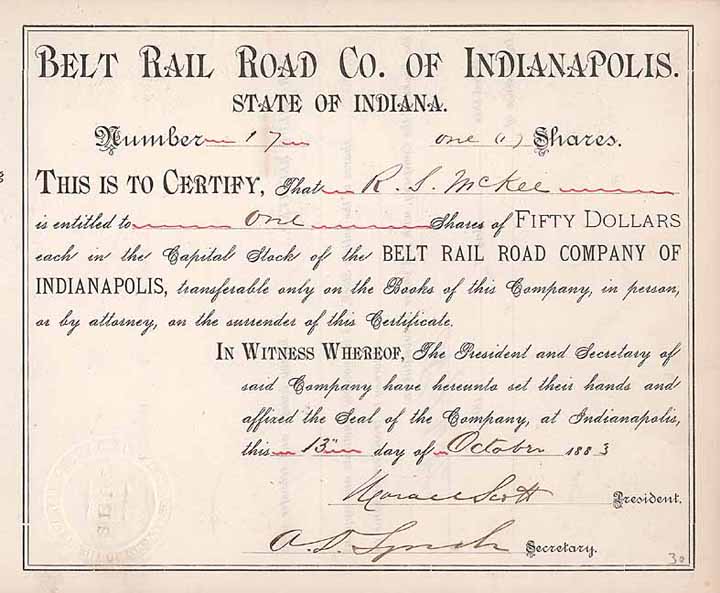 BELT RAIL ROAD CO. OF INDIANAPOLIS.
STATE OF INDIANA.
Number 17 one (1) Shares.
THIS IS TO CERTIFY, That R. S. McKee
is entitled to one Shares of FIFTY DOLLARS
each in the Capital Stock of the BELT RAIL ROAD COMPANY OF
INDIANAPOLIS, transferable only on the Books of this Company, in person,
or by attorney, on the surrender of this Certificate.
IN WITNESS WHEREOF, The President and Secretary of
said Company have hereunto set their hands and
affixed the Seal of the Company, at Indianapolis,
this 13" day of October 1883
Horace Scott President.
A. D. Lynch Secretary.
30